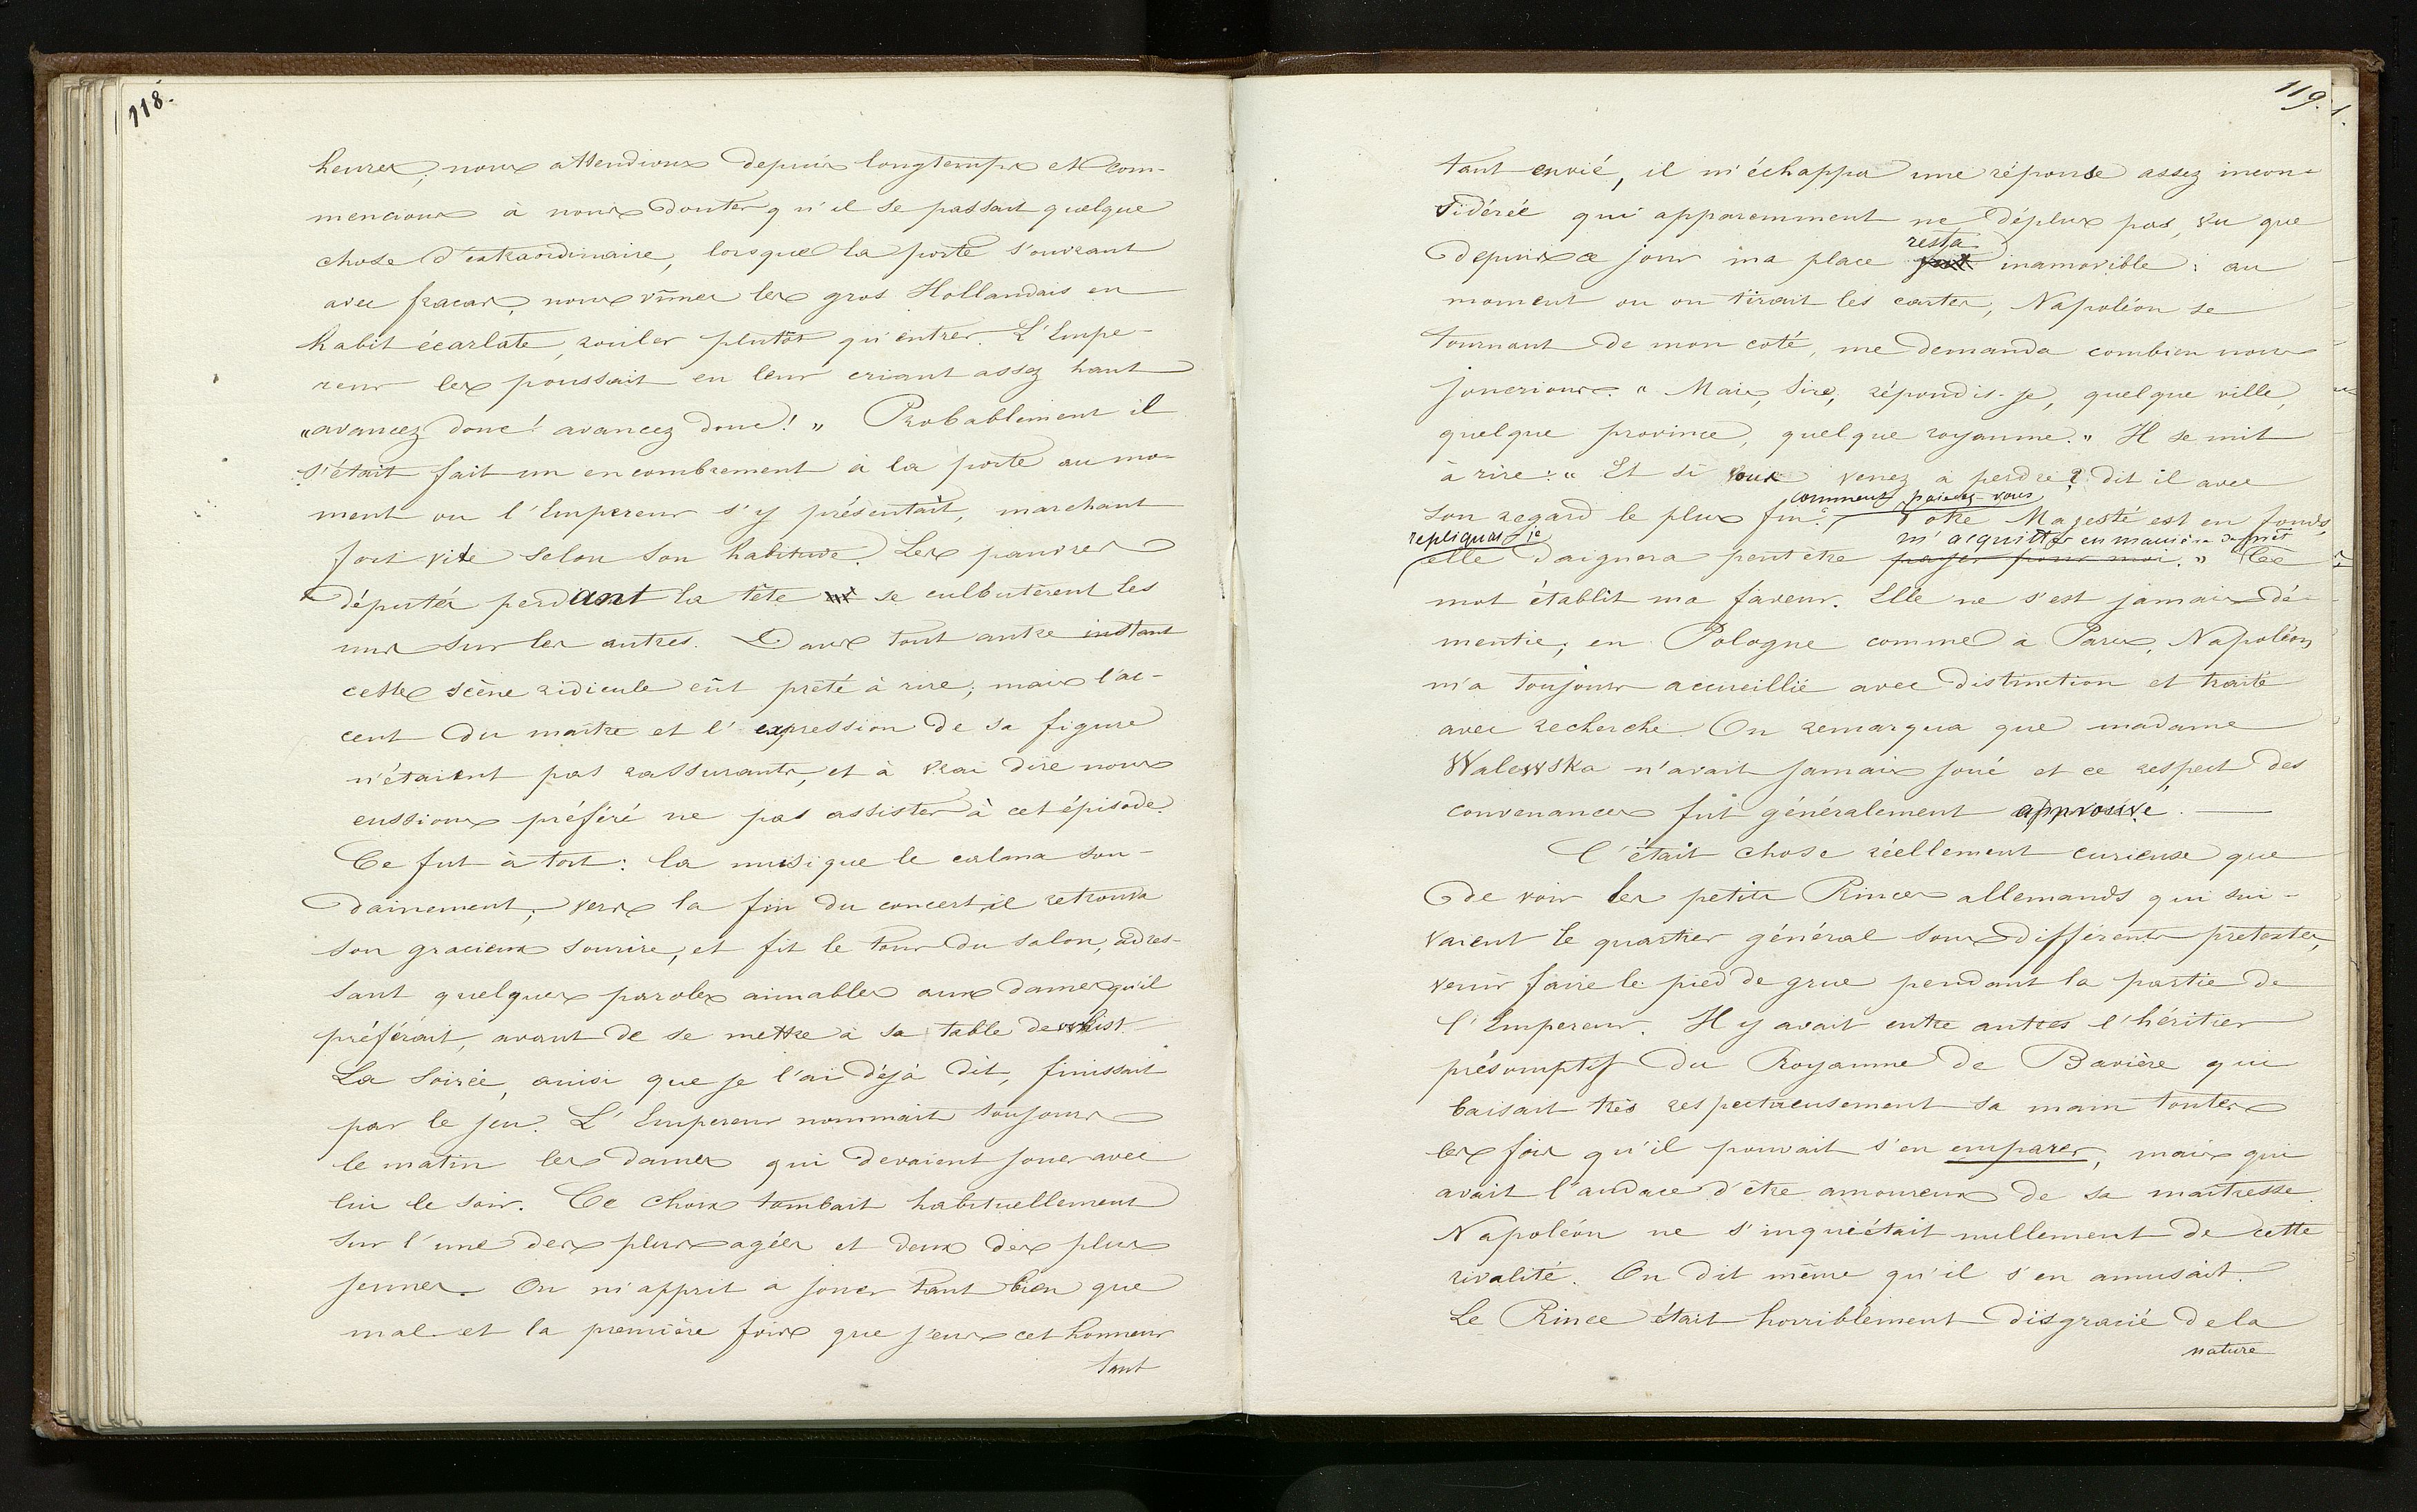 118.
heures; nous attendions depuis longtemps et com-
mencions à nous douter qu'il se passait quelque
chose d'extraordinaire, lorsque la porte s'ouvrant
avec fracas, nous vîmes les gros Hollandais en
habit écarlate, rouler plutôt qu'entrer. L'Empe-
reur les poussait en leur criant assez haut
„avancez donc! avancez donc!„ Probablement il
s'était fait un encombrement à la porte au mo-
ment ou l'Empereur s'y présentait, marchant
fort vite selon son habitude. Les pauvres
députés perdant la tête se culbutèrent les
uns sur les autres. Dans tout autre instant
cette scène ridicule eût prêté à rire; mais l'ac-
cent du maître et l'expression de sa figure
n'étaient pas rassurants, et à vrai dire nous
eussions préféré ne pas assister à cet épisode.
Ce fut à tort: la musique le calma sou-
dainement; vers la fin du concert, il retrouva
son gracieux sourire, et fit le tour du salon, adres-
sant quelques paroles aimables aux dames qu'il
préférait, avant de se mettre à sa table de whist.
La soirée, ainsi que je l'ai déjà dit, finissait
par le jeu. L'Empereur nommait toujours
le matin les dames qui devaient jouer avec
lui le soir. Ce choix tombait habituellement
sur l'une des plus agées et deux des plus
jeunes. On m'apprit a jouer tant bien que
mal et la première fois que j'eus cet honneur
tant
119.
tant envié, il m'échappa une réponse assez incon-
sidérée qui apparemment ne déplus pas, vu que
resta
depuis ce jour ma place fut inamovible: au
moment ou on tirait les cartes, Napoléon se
tournant de mon coté, me demanda combien nous
jouerions. „Mais, Sire, répondis-je, quelque ville,
quelque province, quelque royaume.„ Il se mit
à rire: „Et si vous venez à perdre? dit il avec
comment paierez-vous
son regard le plus fin. Votre Majesté est en fonds,
repliquai-je m'acquitter en manière de prêt
elle daignera peut être payer pour moi.„ Ce
mot établit ma faveur. Elle ne s'est jamais dé-
mentie; en Pologne comme à Paris, Napoléon
m'a toujours accueillie avec distinction et traité
avec recherche. On remarqua que madame
Walewska n'avait jamais joué et ce respect des
convenances fut généralement approuvé.
C'était chose réellement curieuse que
de voir les petits Princes allemands qui sui-
vaient le quartier général sous différents pretextes,
venir faire le pied de grue pendant la partie de
l'Empereur. Il y avait entre autres l'héritier
présomptif du Royaume de Bavière qui
baisait très respectueusement sa main toutes
les fois qu'il pouvait s'en emparer, mais qui
avait l'audace d'être amoureux de sa maîtresse.
Napoléon ne s'inquiétait nullement de cette
rivalité. On dit même qu'il s'en amusait.
Le Prince était horriblement disgracié de la
nature